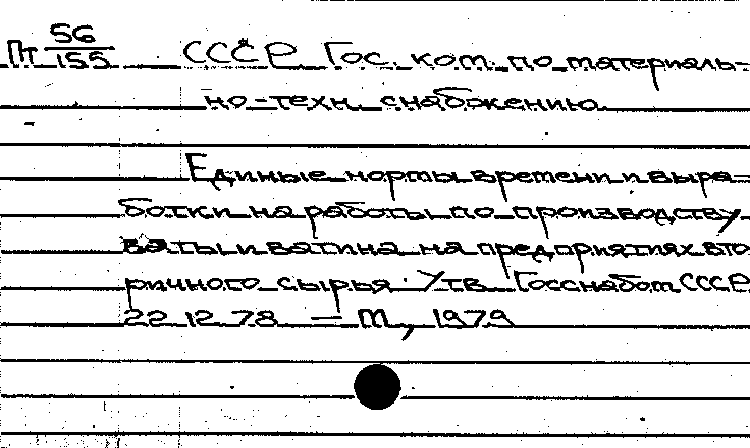 Пт 56/155 СССР. Гос. ком. по материаль-
но-техн. снабжению.
Единые нормы времени и выра-
ботки на работы по производству
ваты и ватина на предприятиях вто
ричного сырья. Утв. Госснабом СССР
22.12.78. — М, 1979